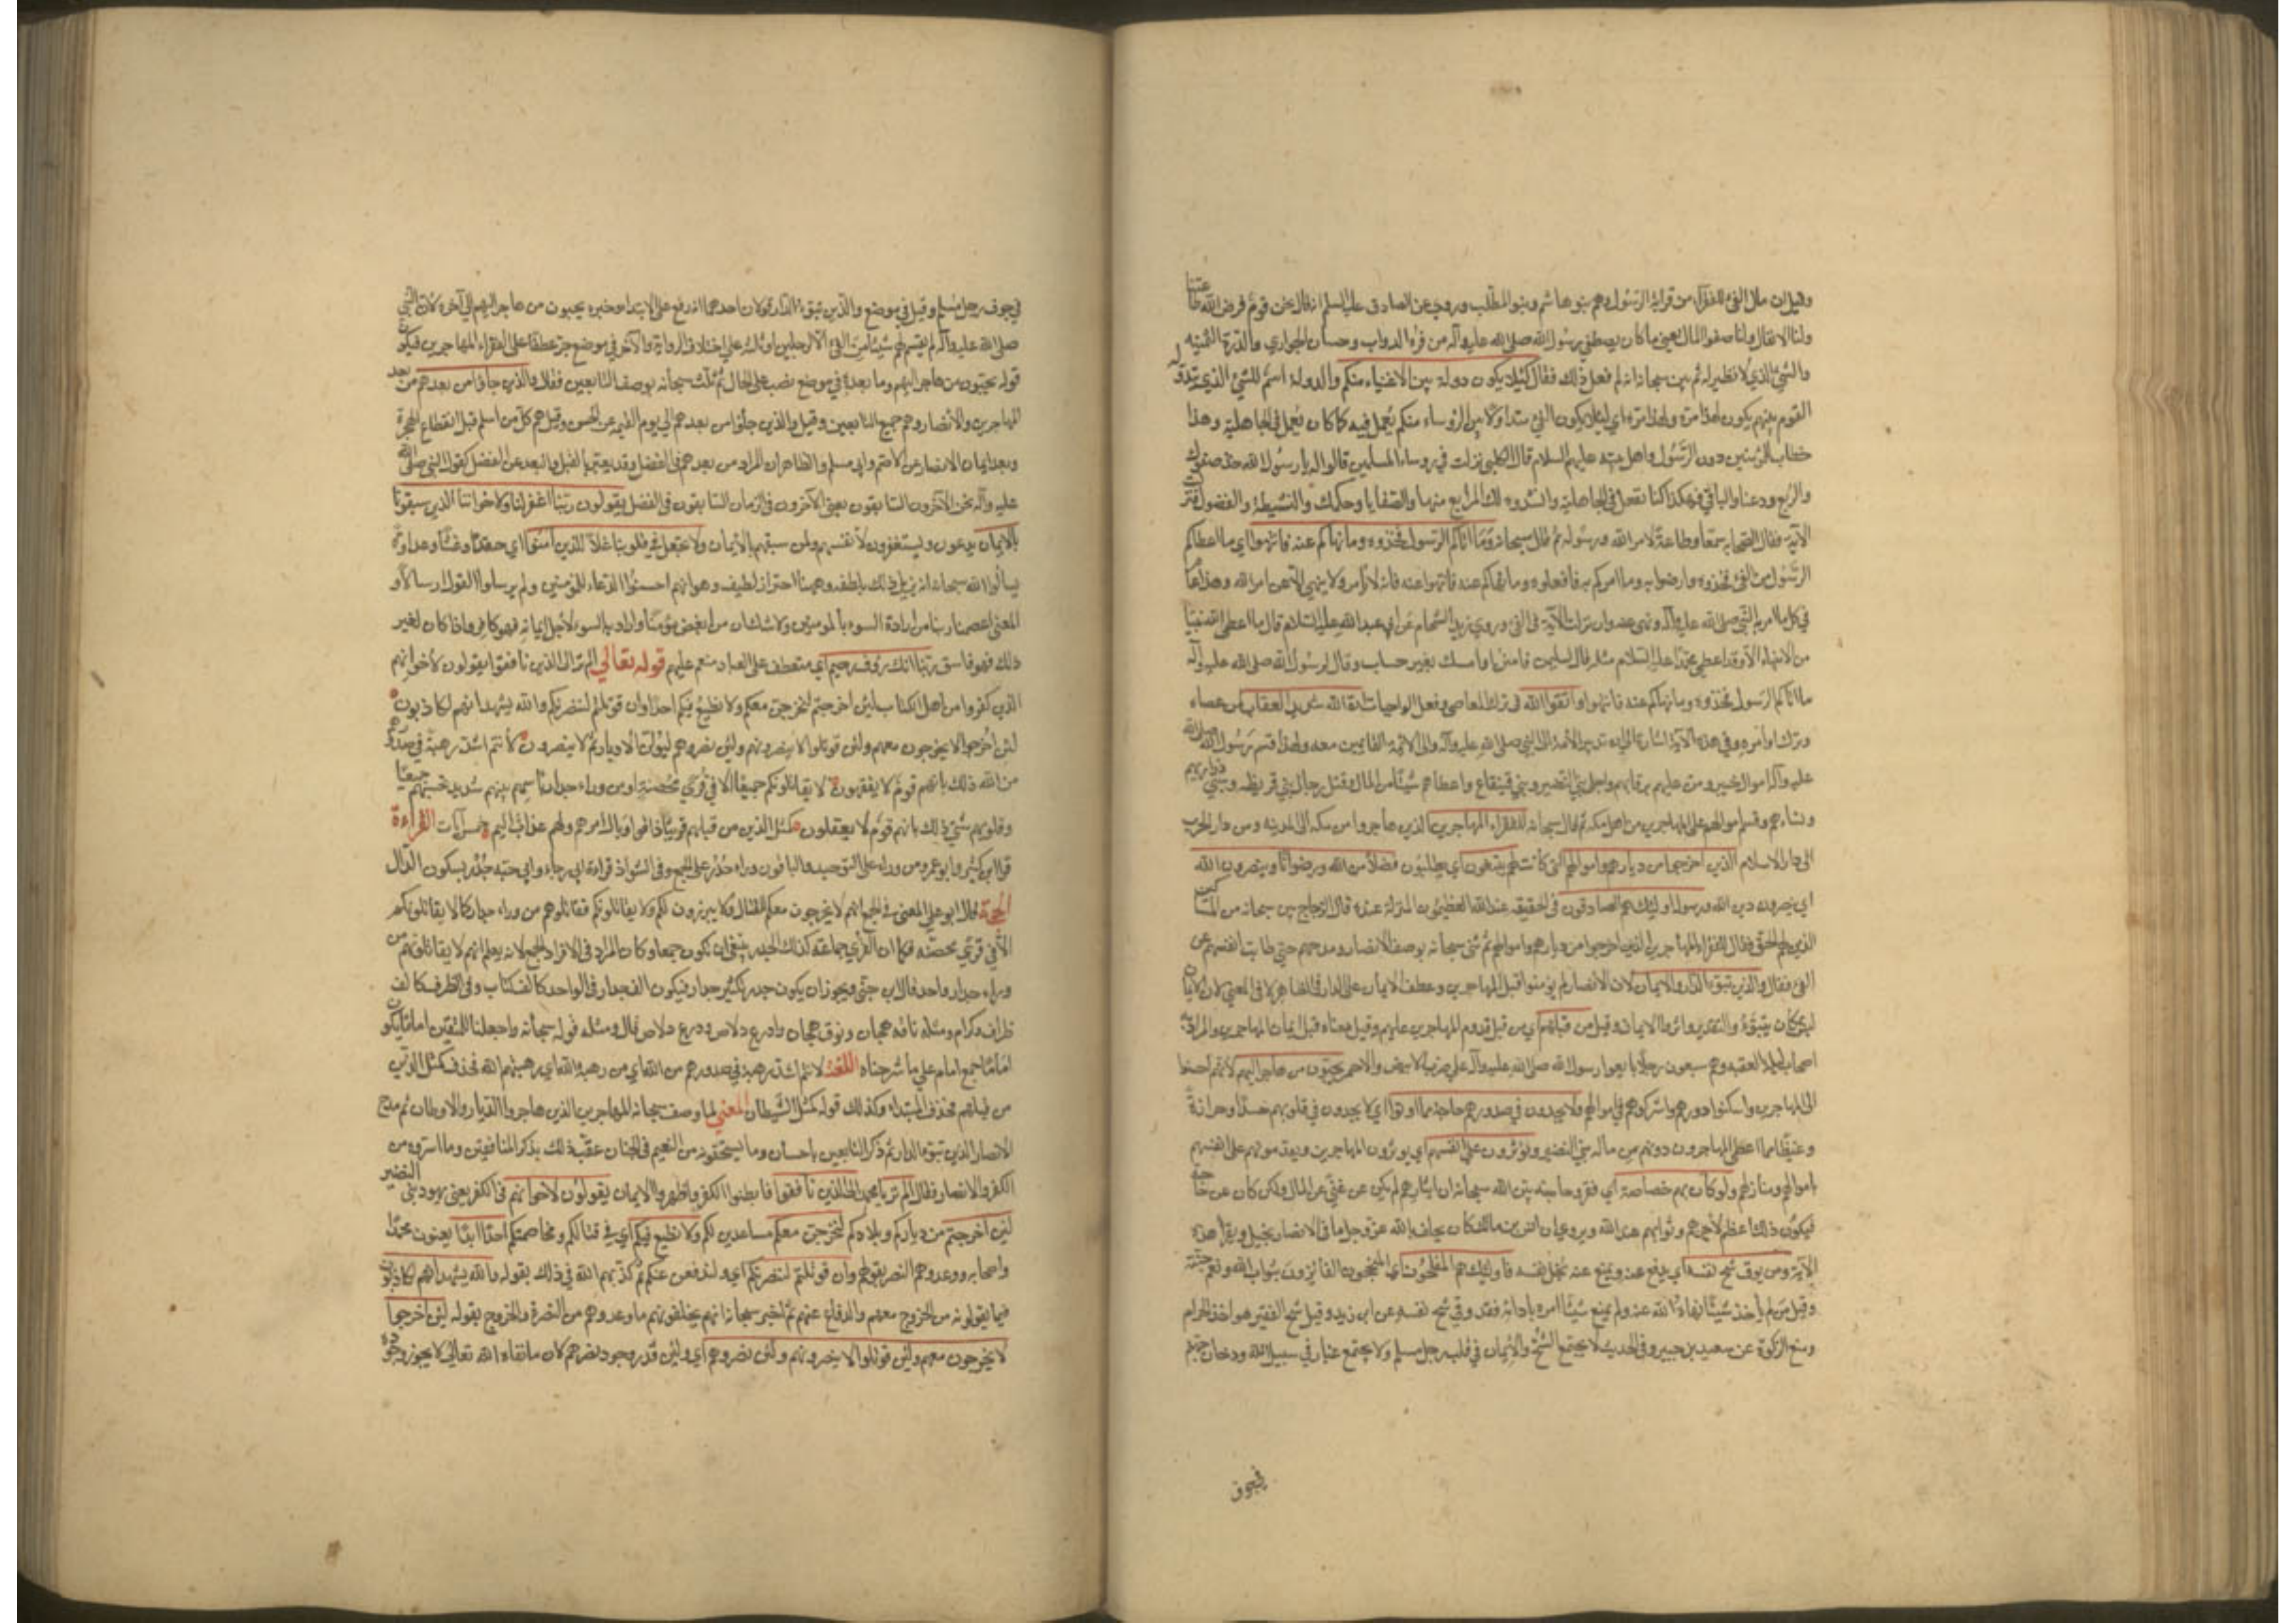 وقيل ان مال الفئ للفقراء من قرابة الرسول وهم بنو هاشم وبنو المطلب وروي عن الصادق عليه السلم انه قال نحن قوم فرض الله طاعتنا
ولنا الانفال ولنا صفو المال يعني ما كان يصطفي رسول الله صلى الله عليه وآله من فره الدواب وحسان الجواري والدرة الثمينه
والشئ الذي لا نظير له ثم بين سبحانه انه لم فعل ذلك فقال كيلا يكون دولة بين الاغنياء منكم والدولة اسم للشئ الذي يتداوله
القوم بينهم يكون لهذا مرة ولهذا مرة اي لئلا يكون الفئ متداولا بين الرؤساء منكم يعمل فيه كما كان يعمل في الجاهلية وهذا
خطاب للمؤمنين دون الرسول واهل بيته عليهم السلام قال الكلبي نزلت في روساء المسلمين قالوا له يا رسول الله خذ صفيك
والربع ودعنا والباقي فهكذا كنا نفعل في الجاهلية وانشدوه لك المرابع منها والصفايا وحكمك والنشيطة والفضول فنزلت
الآية فقال الصحابه سمعا وطاعة لامر الله ورسوله ثم قال سبحانه وما اتاكم الرسول فخذوه وما نهاكم عنه فانتهوا اي ما اعطاكم
الرسول من الفئ فخذوه وارضوا به وما امركم به فافعلوه وما نهاكم عنه فانتهوا عنه فانه لا يأمر ولا ينهى الا عن امر الله وهذا عام
في كل ما امر به النبي صلى الله عليه وآله ونهى عنه وان نزلت الآية في الفئ وروى زيد الشحام عن ابي عبد الله عليه السلام قال ما اعطى الله نبيا
من الانبياء الا وقد اعطى محمدا عليه السلام مثله قال لسليمن فامنن او امسك بغير حساب وقال لرسول الله صلى الله عليه وآله
ما اتاكم الرسول فخذوه وما نهاكم عنه فانتهوا واتقوا الله في ترك المعاصي وفعل الواجبات ان الله شديد العقاب لمن عصاه
وترك اوامره وفي هذه الآية اشارة الى ان تدبير الامة الى النبي صلى الله عليه وآله والى الائمة القائمين معه ولهذا قسم رسول الله صلى الله
عليه وآله اموال خيبر ومن عليهم برقابهم واجلى بني النضير وبني قينقاع واعطاهم شيئا من المال وقتل رجال بني قريظه وسبى ذراريهم
ونساءهم وقسم اموالهم على المهاجرين من اهل مكه ثم قال سبحانه للفقراء المهاجرين الذين هاجروا من مكه الى المدينه ومن دار الحرب
الى دار الاسلام الذين اخرجوا من ديارهم واموالهم التي كانت لهم يبتغون اي يطلبون فضلا من الله ورضوانا وينصرون الله
اي ينصرون دين الله ورسوله اولئك هم الصادقون في الحقيقه عند الله العظيموا المنزلة عنده قال الزجاج بين سبحانه من المساكين
الذين لهم الحق فقال للفقراء المهاجرين الذين اخرجوا من ديارهم واموالهم ثم ثنى سبحانه بوصف الانصار ومدحهم حتى طابت انفسهم عن
الفئ فقال والذين تبوؤا الدار والايمان لان الانصار لم يؤمنوا قبل المهاجرين وعطف الايمان على الدار في الظاهر لا في المعنى لان الايمان
ليس بمكان يتبوؤ والتقدير واثروا الايمان وقيل من قبلهم اي من قبل قدوم المهاجرين عليهم وقيل معناه قبل ايمان المهاجرين والمراد به
اصحاب ليلة العقبه وهم سبعون رجلا بايعوا رسول الله صلى الله عليه وآله على حرب الابيض والاحمر يحبون من هاجر اليهم لانهم احسنوا
الى المهاجرين واسكنوا دورهم واشركوهم في اموالهم ولا يجدون في صدورهم حاجة مما اوتوا اي لا يجدون في قلوبهم حسدا وحزازة
وغيظا مما اعطي المهاجرون دونهم من مال بني النضير ويؤثرون على انفسهم اي يوثرون المهاجرين ويقدمونهم على انفسهم
باموالهم ومنازلهم ولو كان بهم خصاصة اي فقر وحاجة بين الله سبحانه ان ايثارهم لم يكن عن غنى عن المال ولكن كان عن حاجة
فيكون ذلك اعظم لاجرهم وثوابهم عند الله ويروى ان انس بن مالك كان يحلف بالله عز وجل ما في الانصار بخيل ويقرأ هذه
الآية ومن يوق شح نفسه اي يدفع عنه ويمنع عنه بخل نفسه فاولئك هم المفلحون اي المنجحون الفائزون بثواب الله ونعيم جنته
وقيل من لم يأخذ شيئا نهاه الله عنه ولم يمنع شيئا امره باداءه فقد وقي شح نفسه عن ابن زيد وقيل شح النفس هو اخذ الحرام
ومنع الزكوة عن سعيد بن جبير وفي الحديث لا يجتمع الشح والايمان في قلب رجل مسلم ولا يجتمع غبار في سبيل الله ودخان جهنم
في جوف
في جوف رجل مسلم وقيل في موضع والذين تبوؤا الدار قولان احدهما انه رفع على الابتداء وخبره يحبون من هاجر اليهم الى آخره لان النبي
صلى الله عليه وآله لم يقسم لهم شيئا من الفئ الا لرجلين او ثلثة على اختلاف الرواية والآخر في موضع جر عطفا على الفقراء المهاجرين فيكون
قوله يحبون من هاجر اليهم وما بعده في موضع نصب على الحال ثم ثلث سبحانه بوصف التابعين فقال والذين جاؤا من بعدهم من بعد
المهاجرين والانصار وهم جميع التابعين وقيل والذين جاؤا من بعدهم الى يوم القيمة عن الحسن وقيل هم كل من اسلم قبل انقطاع الهجرة
وبعد ايمان الانصار عن الاصم وابي مسلم والظاهر ان المراد من بعدهم في الفضل وقد يعبر بالقبل والبعد عن الفضل كقول النبي صلى الله
عليه وآله نحن الآخرون السابقون يعني الآخرون في الزمان السابقون في الفضل يقولون ربنا اغفر لنا ولاخواننا الذين سبقونا
بالايمان يدعون ويستغفرون لانفسهم ولمن سبقهم بالايمان ولا تجعل في قلوبنا غلا للذين آمنوا اي حقدا وغشا وعداوة
يسألوا الله سبحانه ان يزيل ذلك بلطفه وههنا احتراز لطيف وهو انهم احسنوا الدعاء للمؤمنين ولم يرسلوا القول ارسالا و
المعنى اعصمنا ربنا من ارادة السوء بالمومنين ولا شك ان من ابغض مؤمنا واراد به السوء لاجل ايمانه فهو كافر واذا كان لغير
ذلك فهو فاسق ربنا انك رؤف رحيم اي متعطف على العباد منعم عليهم قوله تعالى الم تر الى الذين نافقوا يقولون لاخوانهم
الذين كفروا من اهل الكتاب لئن اخرجتم لنخرجن معكم ولا نطيع فيكم احدا وان قوتلتم لننصرنكم والله يشهد انهم لكاذبون
لئن اخرجوا لا يخرجون معهم ولئن قوتلوا لا ينصرونهم ولئن نصروهم ليولن الادبار ثم لا ينصرون لانتم اشد رهبة في صدورهم
من الله ذلك بانهم قوم لا يفقهون لا يقاتلونكم جميعا الا في قرى محصنة او من وراء جدار باسهم بينهم شديد تحسبهم جميعا
وقلوبهم شتى ذلك بانهم قوم لا يعقلون كمثل الذين من قبلهم قريبا ذاقوا وبال امرهم ولهم عذاب اليم خمس آيات القراءة
قرا ابن كثير وابو عمرو من وراء على التوحيد والباقون وراء جدر على الجمع وفي الشواذ قراءة ابي رجاء وابي حيه جدر بسكون الدال
الحجة قال ابو علي المعنى في الجمع انهم لا يخرجون معكم للقتال ولا يبرزون لكم ولا يقاتلونكم فقاتلوهم من وراء جدار كما لا يقاتلونكم
الا في قرى محصنه فكما ان القرى جماعة كذلك الجدر ينبغي ان يكون جمعا وكان المراد في الافراد الجمع لانه يعلم انهم لا يقاتلونهم من
وراء جدار واحد قال ابن جنى ويجوز ان يكون جدر تكسير جدار فيكون الف جدار في الواحد كالف كتاب وفي الظرف كالف
ظراف وكرام ومثله ناقه هجان ونوق هجان وادرع دلاص ودرع دلاص قال ومثله قوله سبحانه واجعلنا للمتقين اماما يكون
اماما جمع امام على ما شرحناه اللغة لانتم اشد رهبة في صدورهم من الله اي من رهبة الله اي رهبتهم الله فحذف كمثل الذين
من قبلهم فحذف المبتداء وكذلك قوله كمثل الشيطان المعنى لما وصف سبحانه المهاجرين الذين هاجروا الديار والاوطان ثم مدح
الانصار الذين تبوؤا الدار ثم ذكر التابعين باحسان وما يستحقونه من النعيم في الجنان عقب ذلك بذكر المنافقين وما اسروه من
الكفر والانصار فقال الم تر يا محمد الى الذين نافقوا فابطنوا الكفر واظهروا الايمان يقولون لاخوانهم في الكفر يعني يهود بني النضير
لئن اخرجتم من دياركم وبلادكم لنخرجن معكم مساعدين لكم ولا نطيع فيكم اي في قتالكم ومخاصمتكم احدا ابدا يعنون محمدا
واصحابه ووعدوهم النصر بقولهم وان قوتلتم لننصرنكم اي ولندفعن عنكم ثم كذبهم الله في ذلك بقوله والله يشهد انهم لكاذبون
فيما يقولونه من الخروج معهم والدفاع عنهم ثم اخبر سبحانه انهم يخلفونهم ما وعدوهم من النصرة والخروج بقوله لئن اخرجوا
لا يخرجون معهم ولئن قوتلوا لا ينصرونهم ولئن نصروهم اي ولئن قدر وجود نصرهم لان ما نفاه الله تعالى لا يجوز وجوده